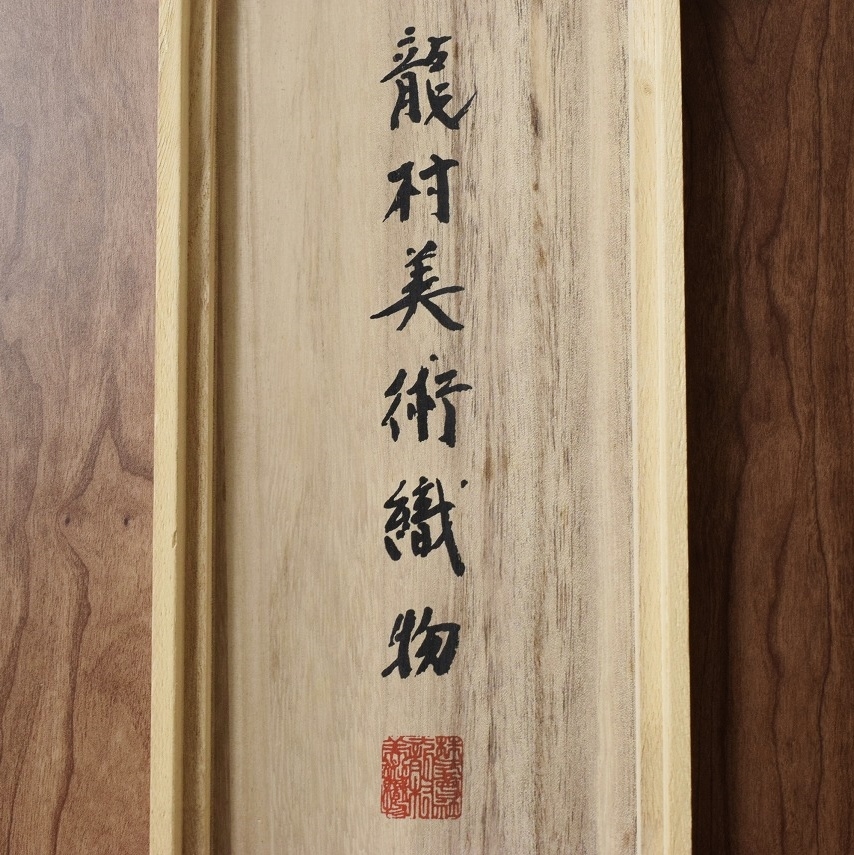 龍村美術織物